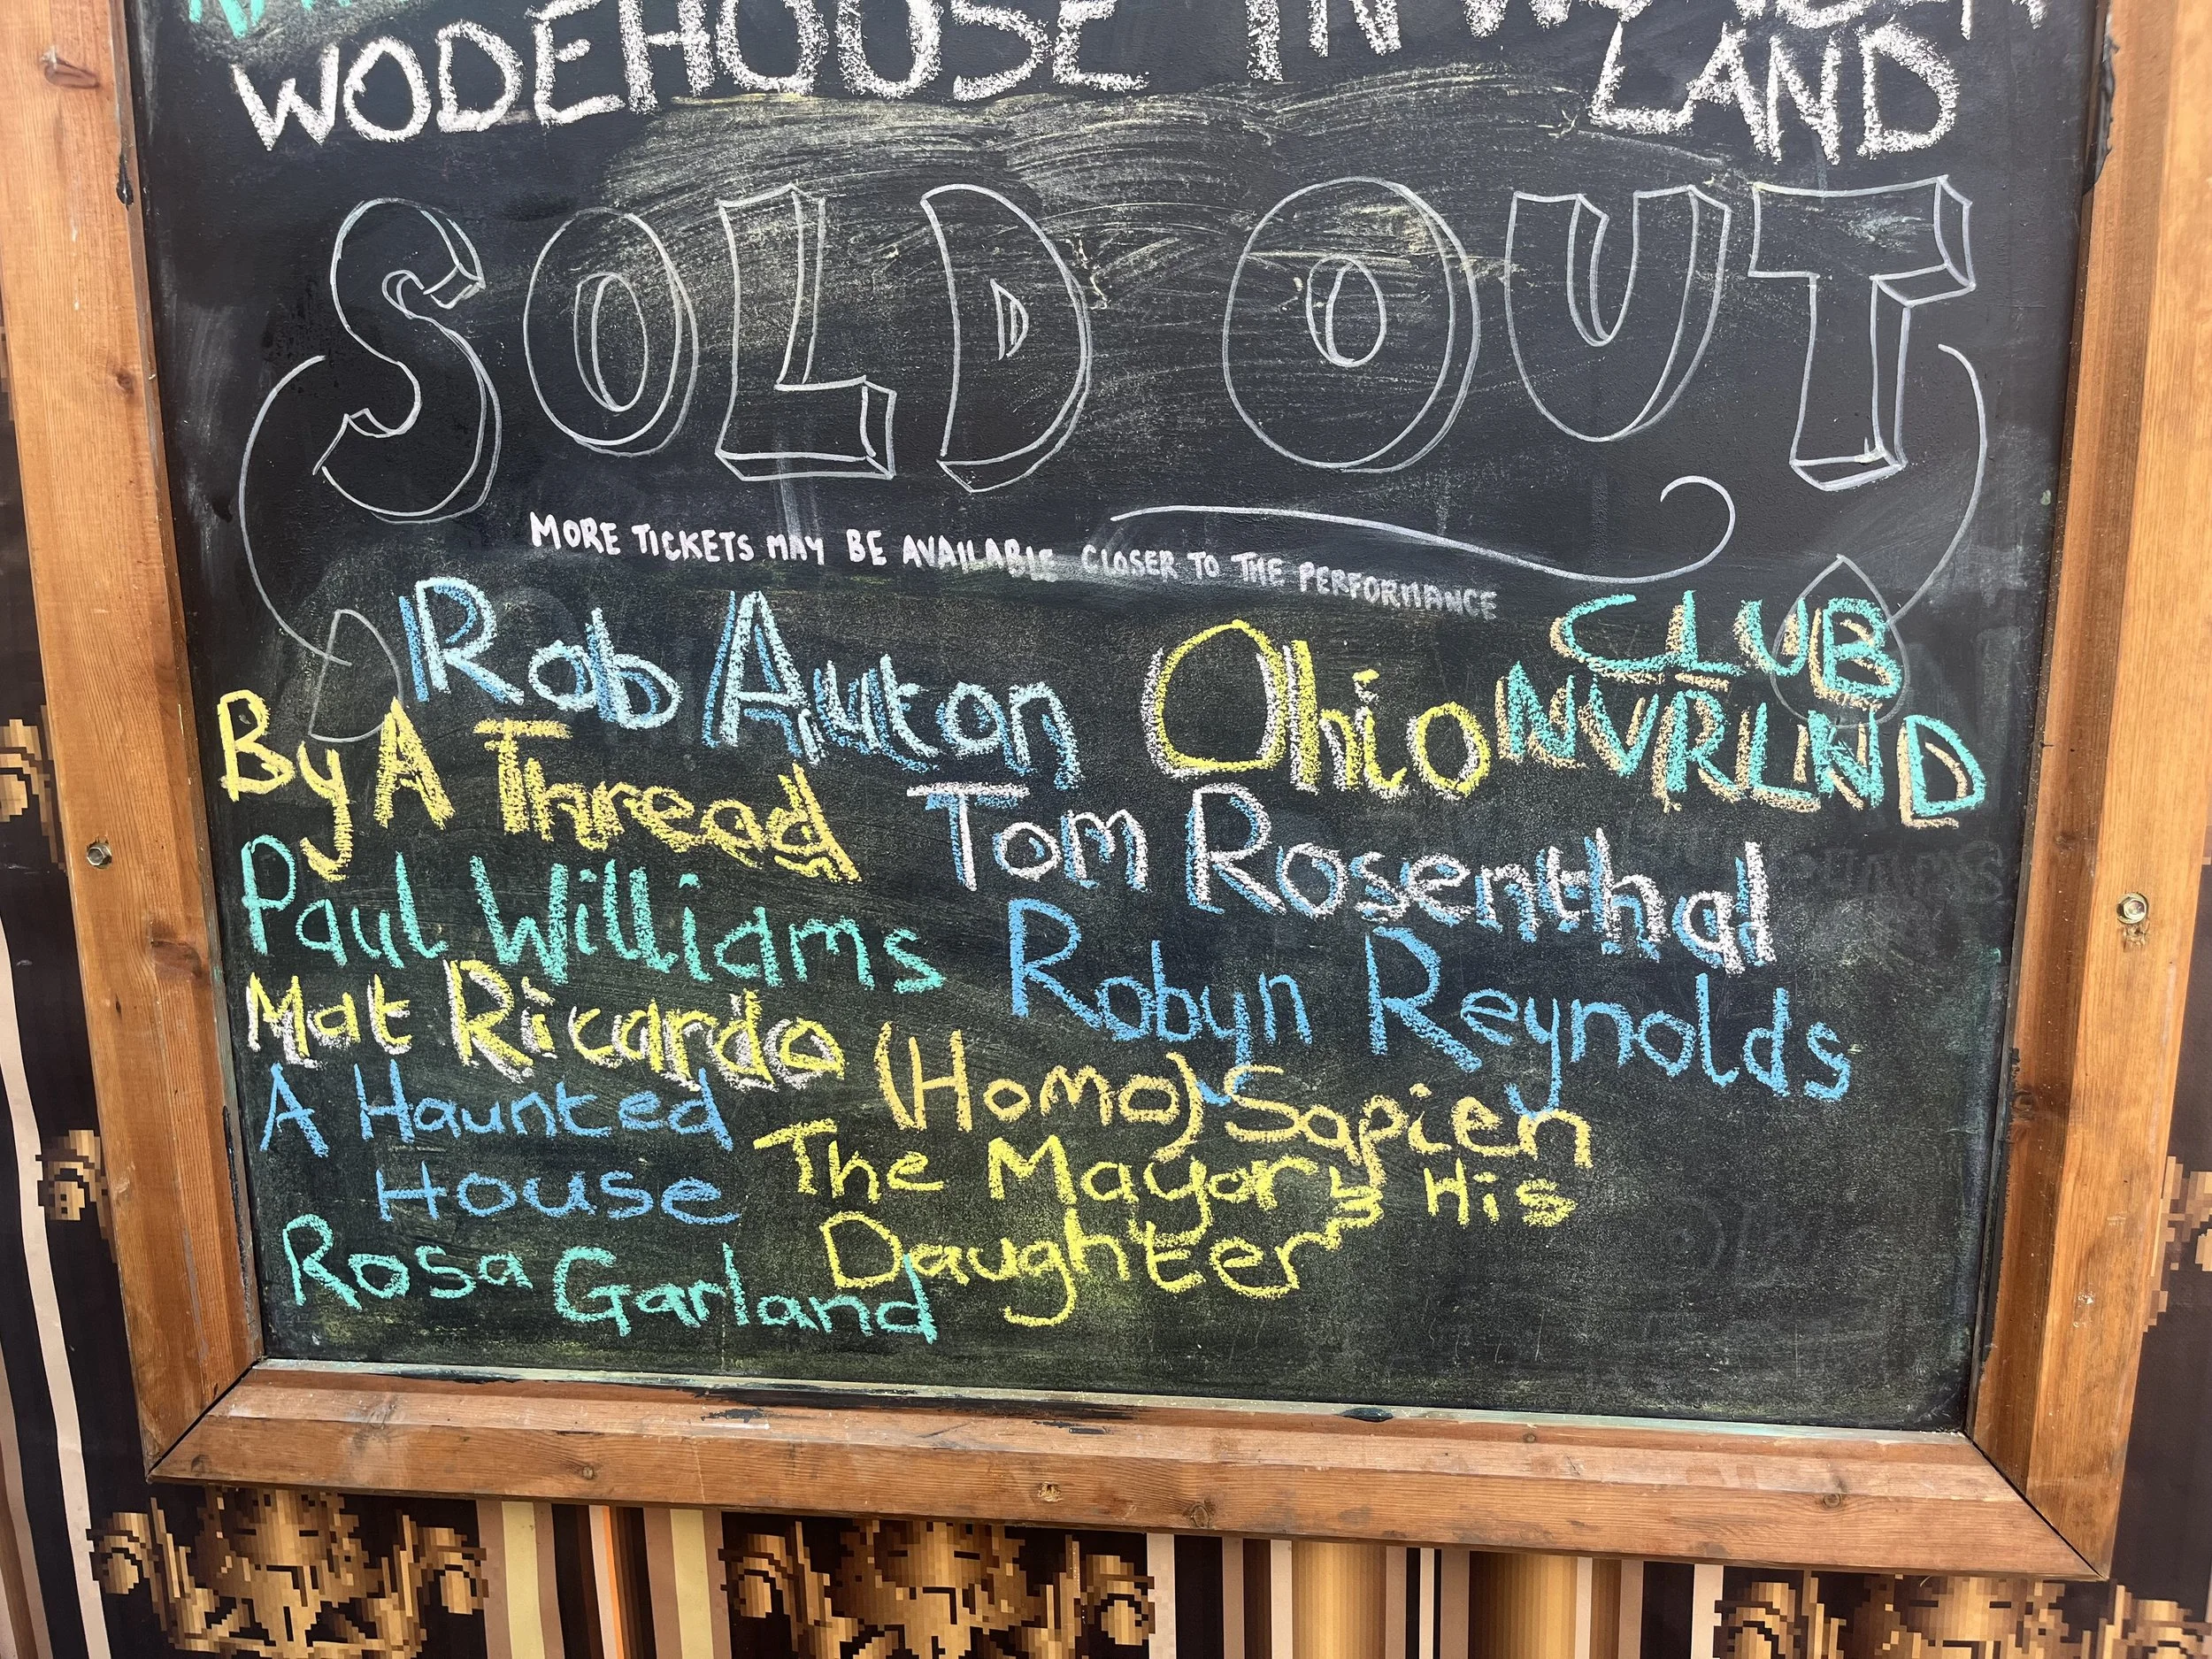 WODEHOUSE IN
LAND
SOLD OUT
MORE TICKETS MAY BE AVAILABLE CLOSER TO THE PERFORMANCE
Rob Auton
Ohio
CLUB
NVRLND
By A Thread
Tom Rosenthal
Paul Williams
Robyn Reynolds
Mat Ricardo
(Homo) Sapien
A Haunted
House
The Mayor & His
Daughter
Rosa Garland